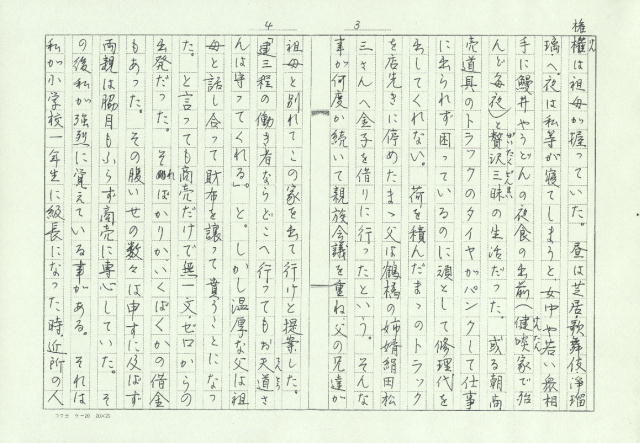 権権は祖母が握っていた。昼は芝居・歌舞伎・浄瑠
璃へ。夜は私等が寝てしまうと女中や若い衆相
手に鰻丼やうどんの夜食の出前へ健啖家で殆
んど毎夜と贅沢三昧の生活だった。或る朝商
売道具のトラックのタイヤがパンクして仕事
に出られず困っているのに頑として修理代を
出してくれない。荷を積んだまゝのトラック
を店先きに停めたまゝ父は鶴橋の姉婿絹田松
三さんへ金子を借りに行ったという。そんな
事が何度か続いて親族会議を重ね父の兄達が
祖母と別れてこの家を出て行けと提案した。
「建三程の働き者ならどこへ行ってもお天道さ
んは守ってくれる」と。しかし温厚な父は祖
母と話し合って財布を譲って貰うことになっ
た。と言っても商売だけで無一文・ゼロからの
出発だった。そればかりかいくばくかの借金
もあった。その腹いせの数々は申すに及ばず
両親は脇目もふらず商売に専心していた。そ
の後私が強烈に覚えている事がある。それは
私が小学校一年生に級長になった時近所の人
3
4
コクヨ ケ-20 20×20